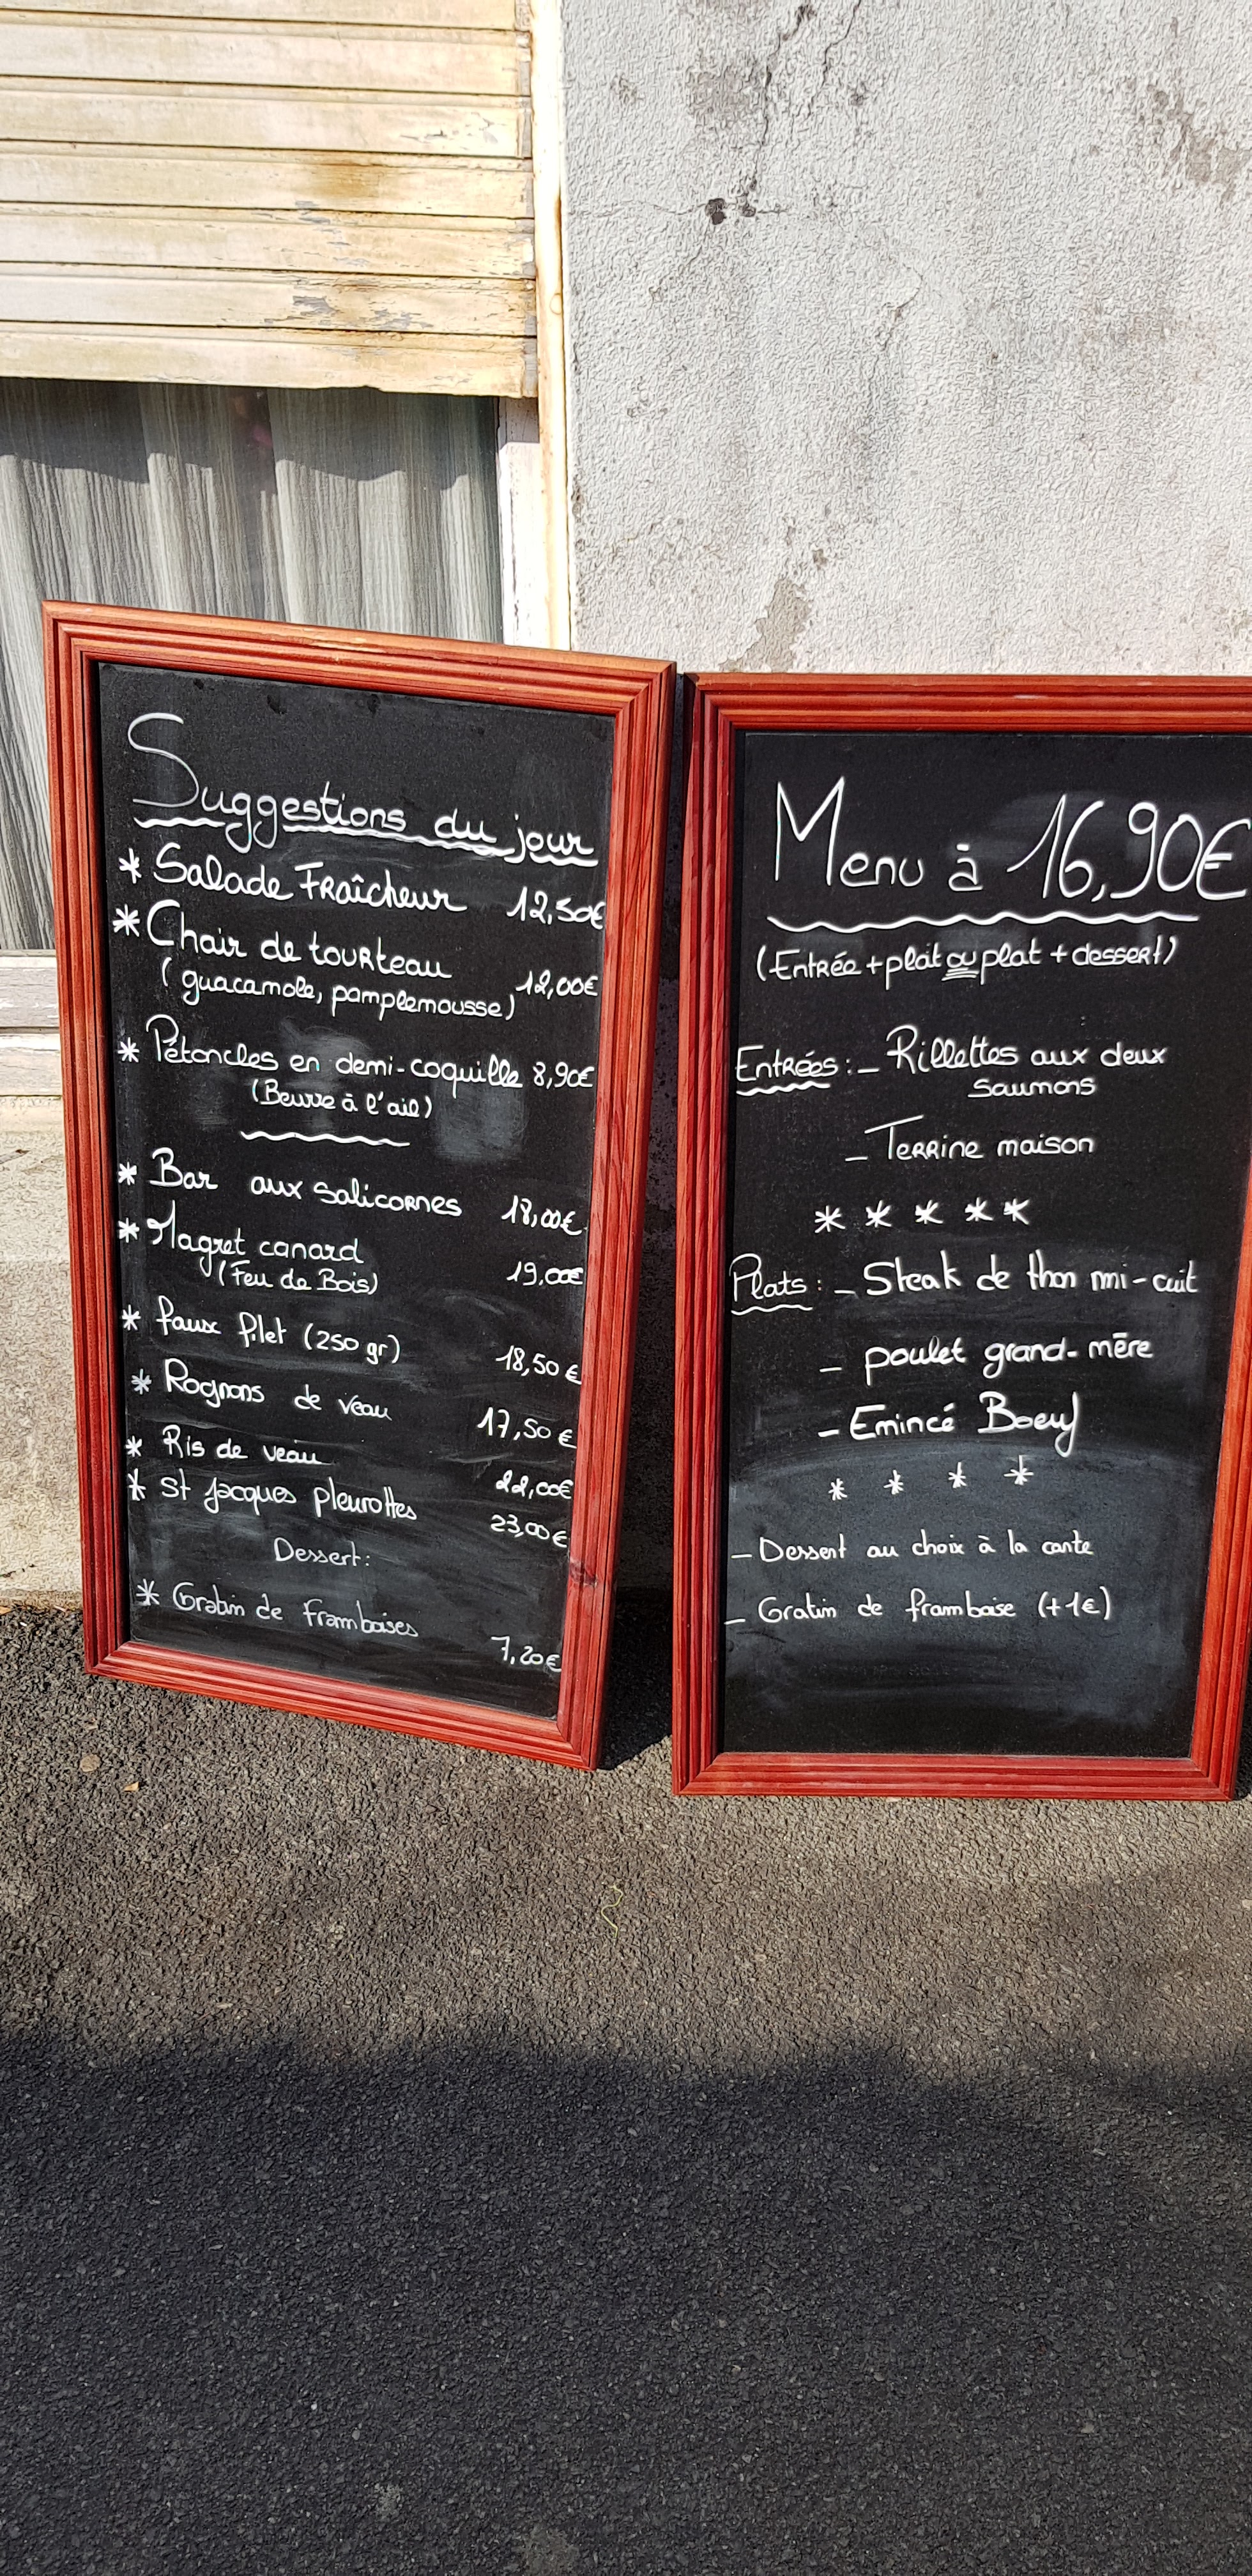 Suggestions du jour
* Salade Fraîcheur 12,50€
* Chair de tourteau
(guacamole, pamplemousse) 12,00€
* Pétoncles en demi-coquille 8,90€
(Beurre à l'ail)
* Bar aux salicornes 18,00€
* Magret canard
(Feu de Bois) 19,00€
* faux filet (250 gr) 18,50€
* Rognons de veau 17,50€
* Ris de veau 22,00€
* St Jacques pleurottes 23,00€
Dessert:
* Gratin de Framboises 7,20€
Menu à 16,90€
(Entrée + plat ou plat + dessert)
Entrées: - Rillettes aux deux
saumons
- Terrine maison
* * * * *
Plats: - Steak de thon mi-cuit
- poulet grand-mère
- Emincé Boeuf
* * * *
- Dessert au choix à la carte
- Gratin de framboise (+1€)